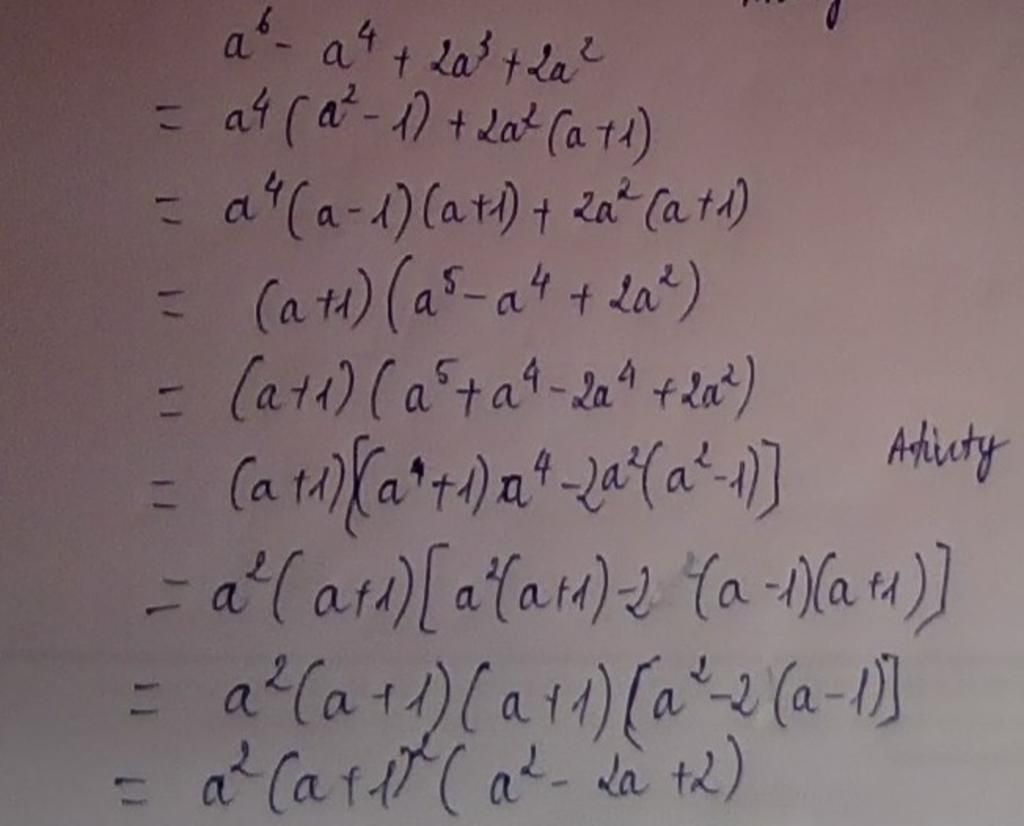 a⁶ - a⁴ + 2a³ + 2a²
= a⁴(a² - 1) + 2a²(a+1)
= a⁴(a-1)(a+1) + 2a²(a+1)
= (a+1)(a⁵ - a⁴ + 2a²)
= (a+1)(a⁵ + a⁴ - 2a⁴ + 2a²)
= (a+1)[(a⁴+1)a⁴ - 2a²(a²-1)]
= a²(a+1)[a²(a+1) - 2(a-1)(a+1)]
= a²(a+1)(a+1)[a² - 2(a-1)]
= a²(a+1)²(a² - 2a + 2)